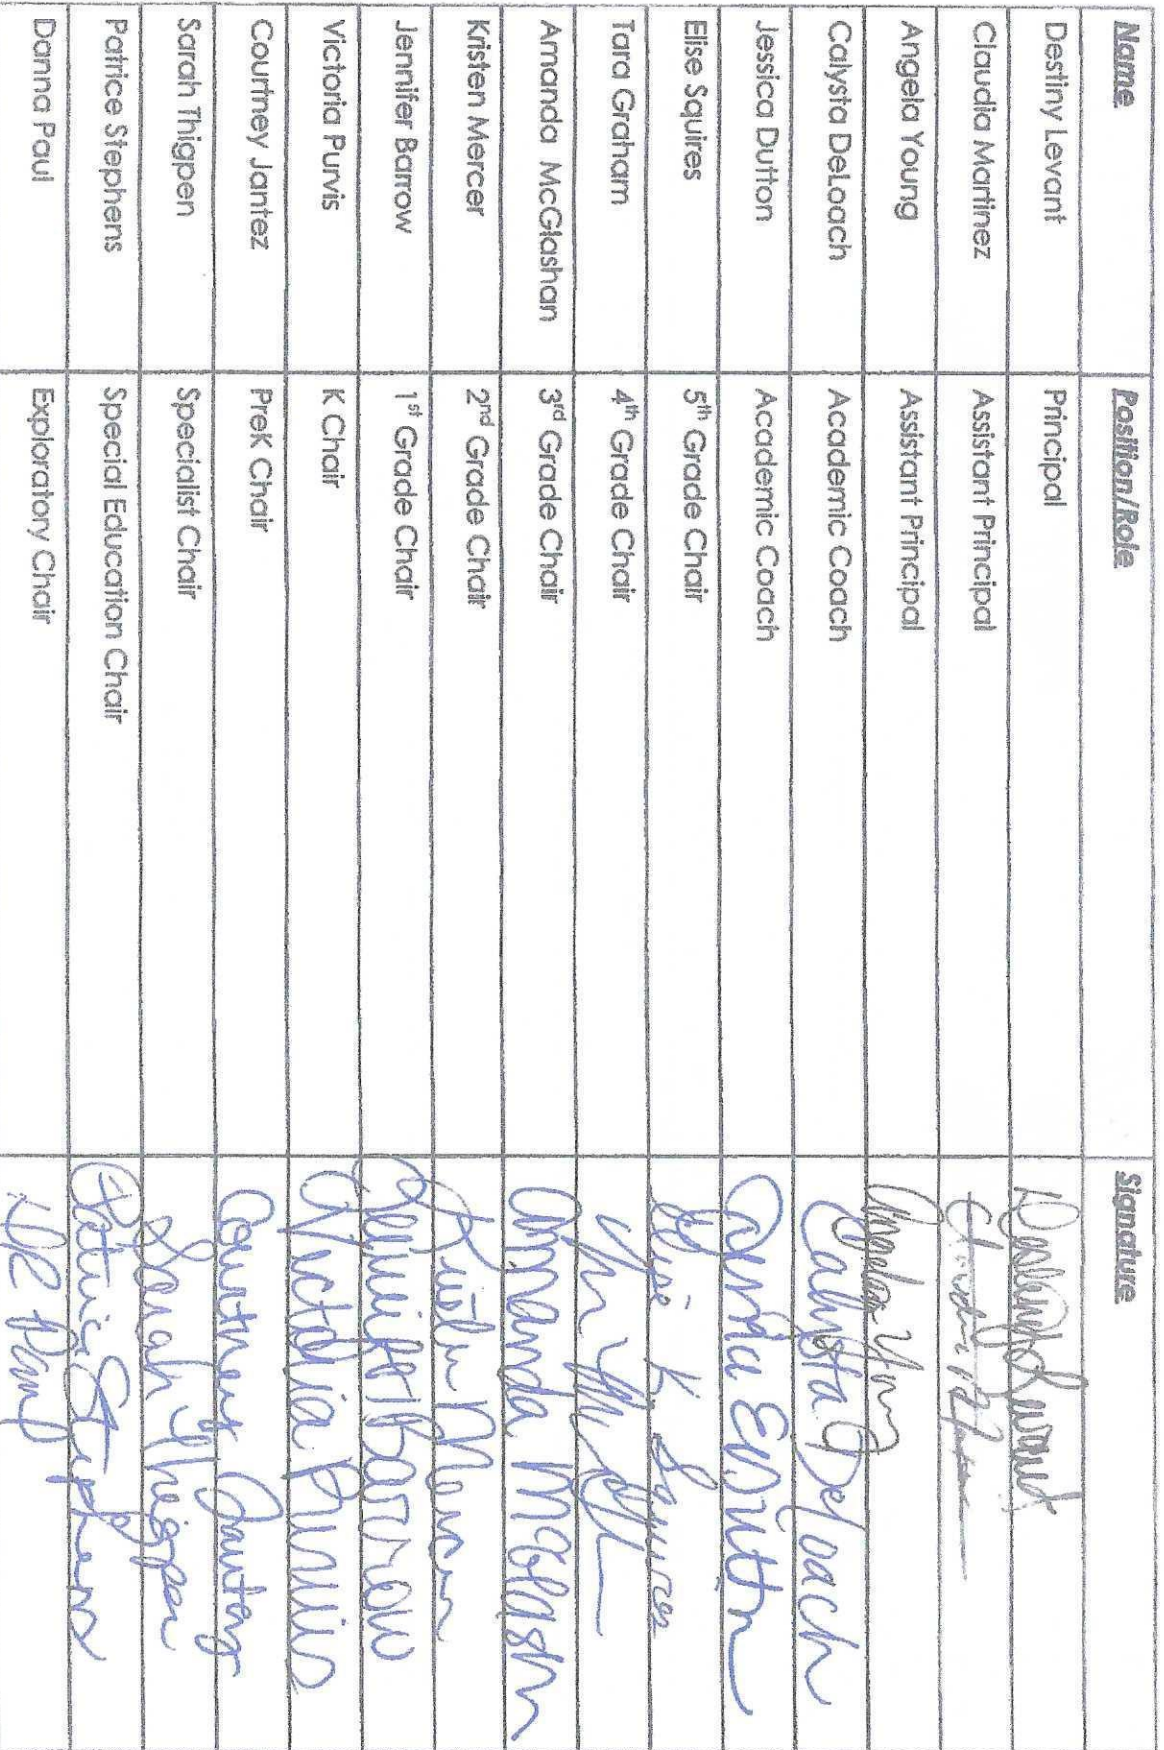 Name Position/Role Signature
Destiny Levant Principal
Claudia Martinez Assistant Principal
Angela Young Assistant Principal Angela Young
Calysta DeLoach Academic Coach Calysta DeLoach
Jessica Dutton Academic Coach
Elise Squires 5th Grade Chair Elise K. Squires
Tara Graham 4th Grade Chair
Amanda McGlashan 3rd Grade Chair Amanda McGlash
Kristen Mercer 2nd Grade Chair Kristen Mercer
Jennifer Barrow 1st Grade Chair Jennifer Barrow
Victoria Purvis K Chair Victoria Purvis
Courtney Jantez PreK Chair Courtney Jantez
Sarah Thigpen Specialist Chair Sarah Thigpen
Patrice Stephens Special Education Chair Patrice Stephens
Danna Paul Exploratory Chair